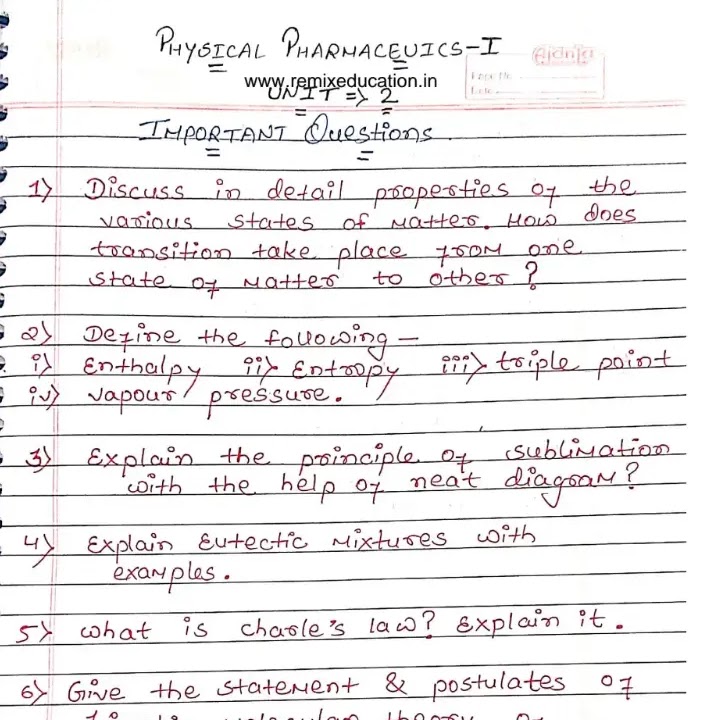 PHYSICAL PHARMACEUICS-I
Ajanta
www.remixeducation.in
UNIT => 2
IMPORTANT Questions
1) Discuss in detail properties of the
various states of matter. How does
transition take place from one
state of matter to other?
2) Define the following —
i) Enthalpy ii) Entropy iii) triple point
iv) vapour pressure.
3) Explain the principle of sublimation
with the help of neat diagram?
4) Explain Eutectic mixtures with
examples.
5) what is charle's law? Explain it.
6) Give the statement & postulates of
molecular theory of